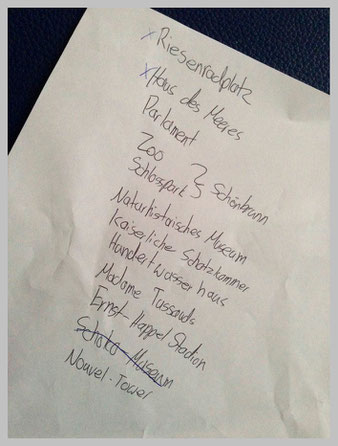 x Riesenradplatz
x Haus des Meeres
Parlament
Zoo
Schlosspark } Schönbrunn
Naturhistorisches Museum
Kaiserliche Schatzkammer
Hundertwasserhaus
Madame Tussauds
Ernst-Happel Stadion
Schoko-Museum
Nouvel-Tower